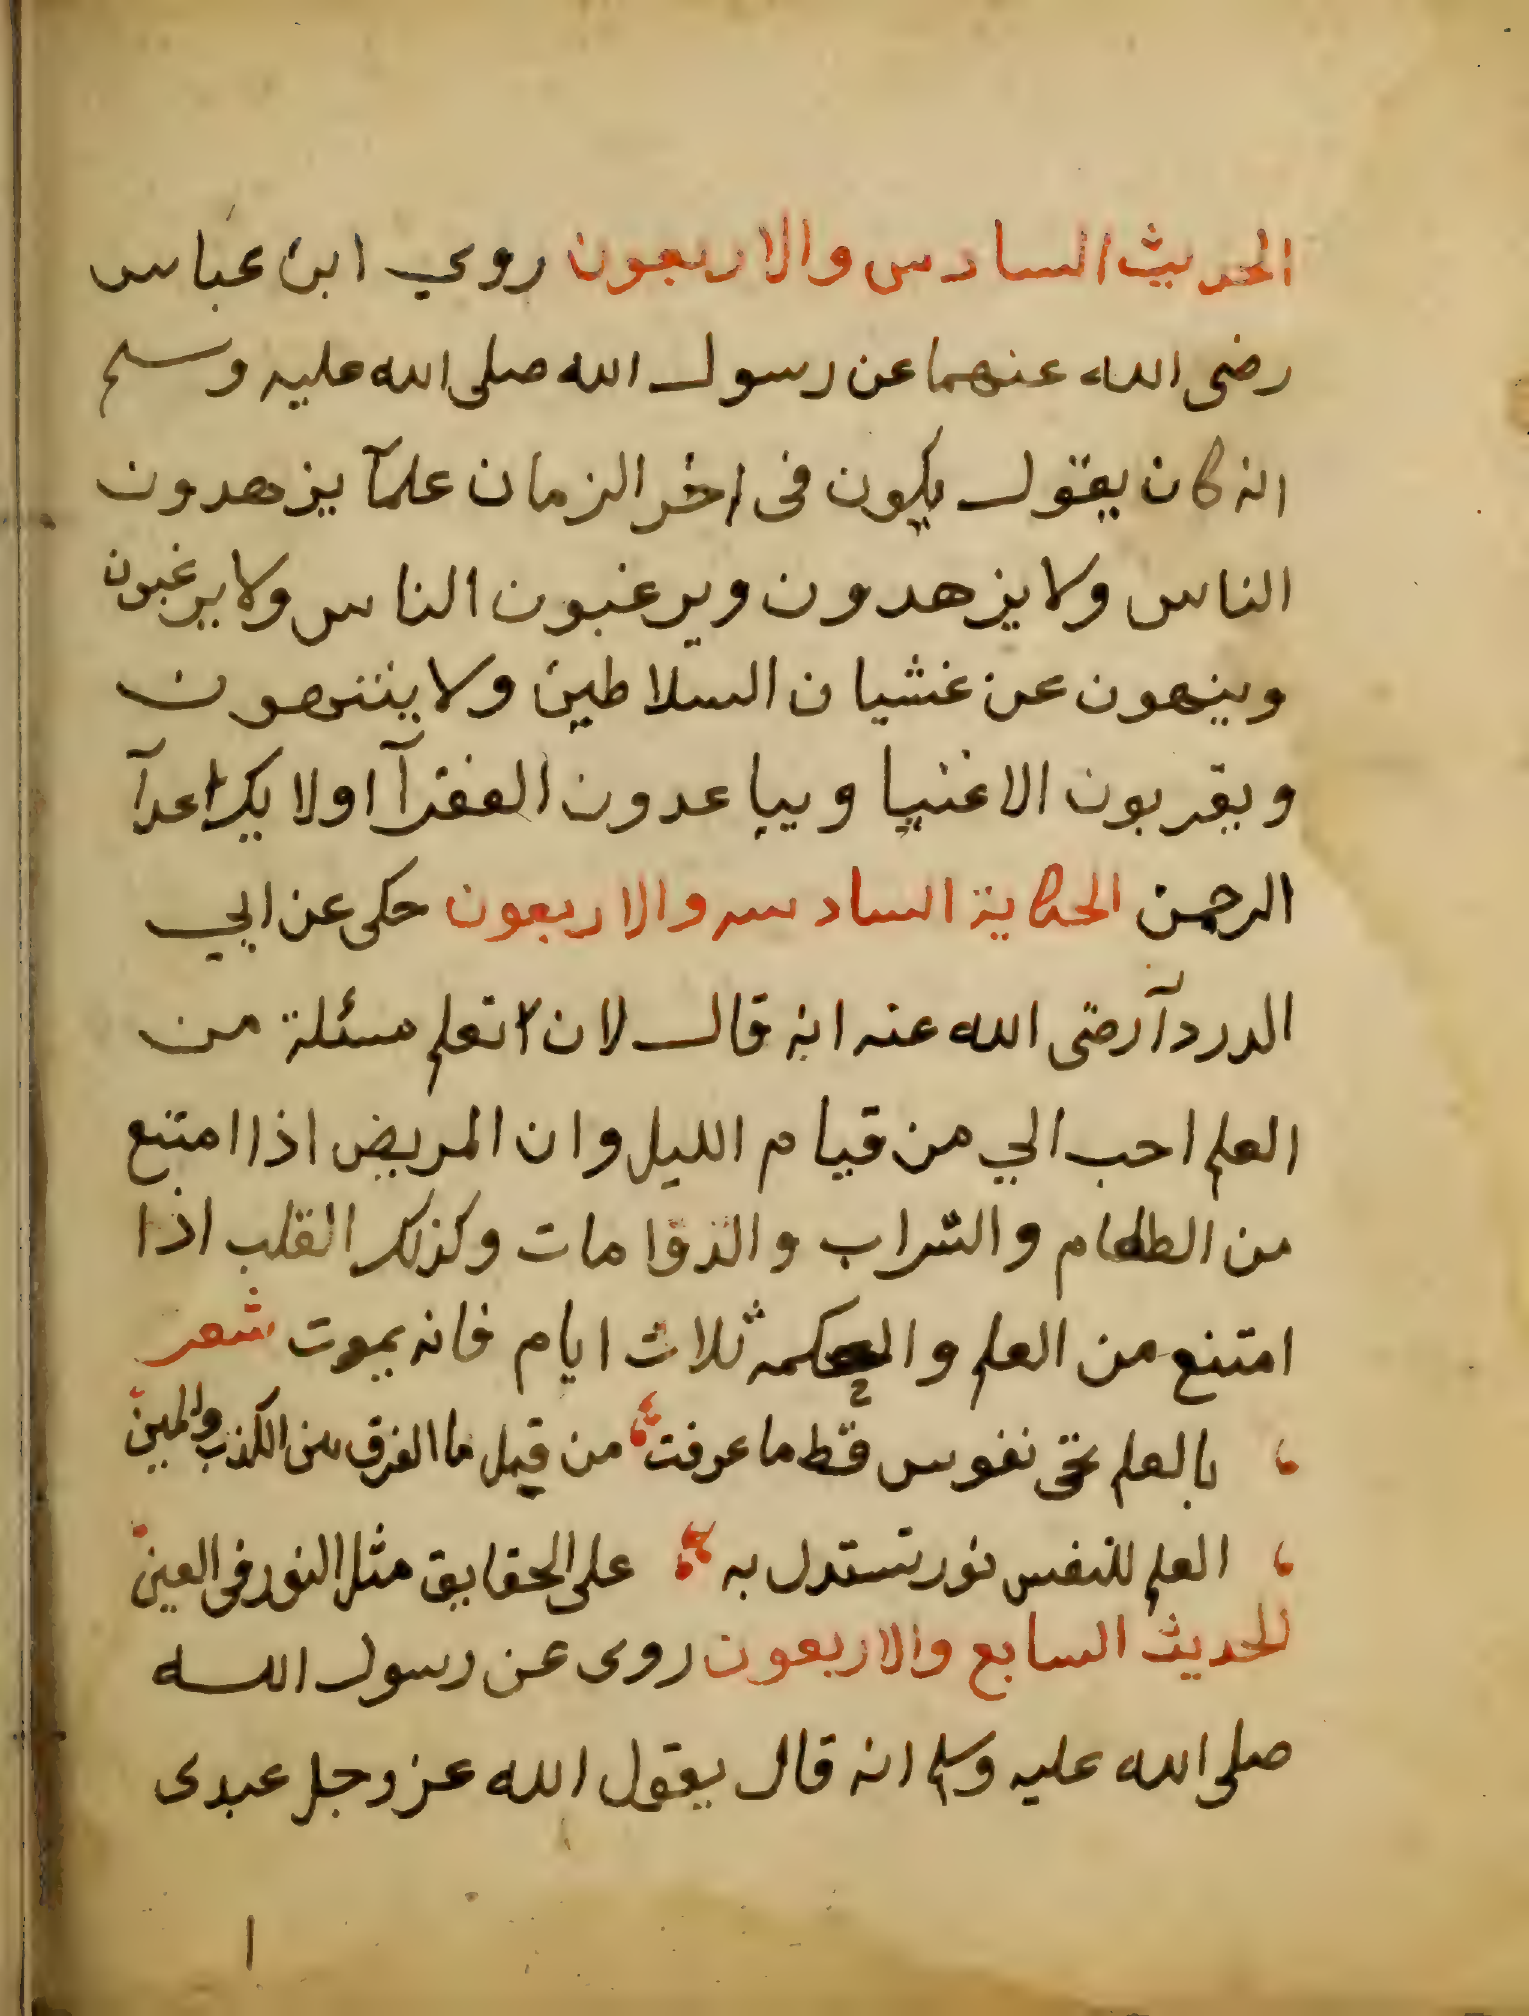 الحديث السادس والاربعون روي ابن عباس
رضى الله عنهما عن رسول الله صلى الله عليه وسلم
انه كان يقول يكون فى اخر الزمان علمآ يزهدون
الناس ولا يزهدون ويرغبون الناس ولا يرغبون
وينهون عن غشيان السلاطين ولا ينتهون
ويقربون الاغنيا ويباعدون الفقرآ اولايك اعدآ
الرحمن الحكاية السادسه والاربعون حكى عن ابي
الدردآ رضى الله عنه انه قال لان اتعلم مسئلة من
العلم احب الي من قيام الليل وان المريض اذا امتنع
من الطعام والشراب والدوا مات وكذلك القلب اذا
امتنع من العلم والحكمه ثلاث ايام فانه يموت شعر
بالعلم تحى نفوس قط ما عرفت من قبل ما الفرق بين الكذب والمين
العلم للنفس نور تستدل به على الحقايق مثل النور فى العين
الحديث السابع والاربعون روى عن رسول الله
صلى الله عليه وسلم انه قال يقول الله عز وجل عبدى